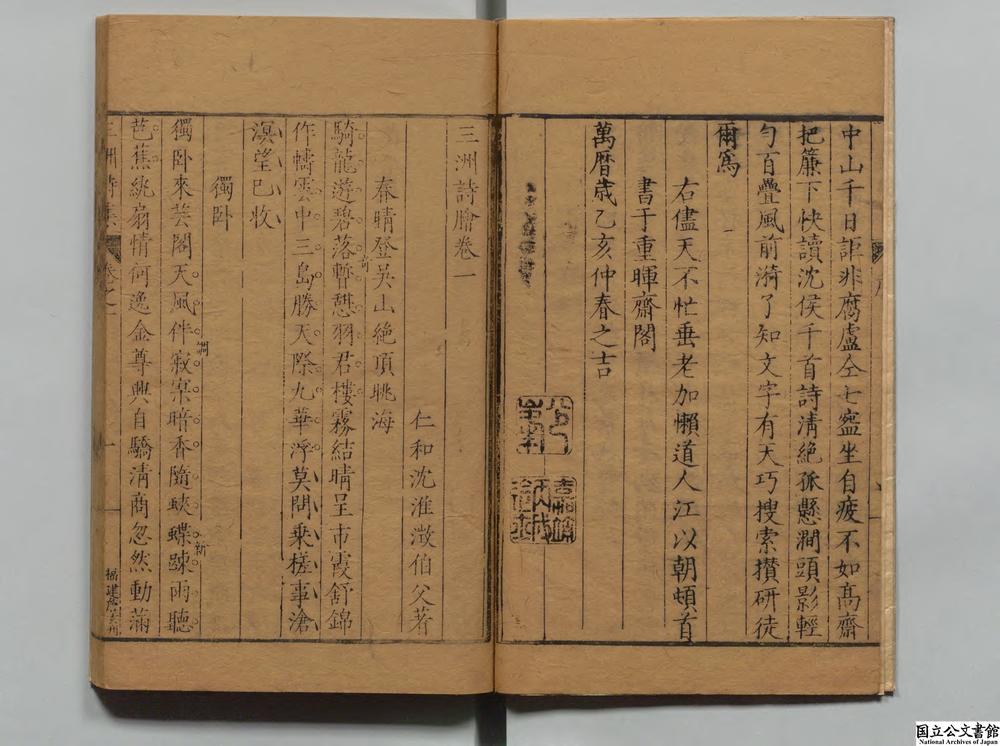 中山千日詎非腐盧仝七盌坐自疲不如高齋
把簾下快讀沈侯千首詩清絕孤懸澗頭影輕
勻百疊風前漪了知文字有天巧搜索攢研徒
爾為
右儘天不忙垂老加懶道人江以朝頓首
書于重暉齋閣
萬曆歲乙亥仲春之吉
三洲詩膾卷一
仁和沈淮澂伯父著
春晴登吳山絕頂眺海
騎龍遊碧落暫憇羽君樓霧結晴呈市霞舒錦
作幬雲中三島勝天際九華浮莫問乘槎事滄
溟望已收
獨臥
獨臥來芸閣天風伴寂寥暗香隨蛺蝶踈雨聽
芭蕉紈扇情何逸金尊興自驕清商忽然動滿
国立公文書館
National Archives of Japan